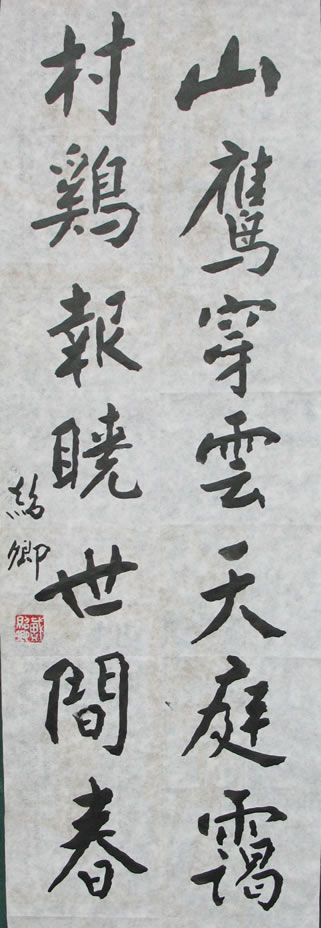 山鷹穿雲天庭靄
村鷄報曉世間春
卿